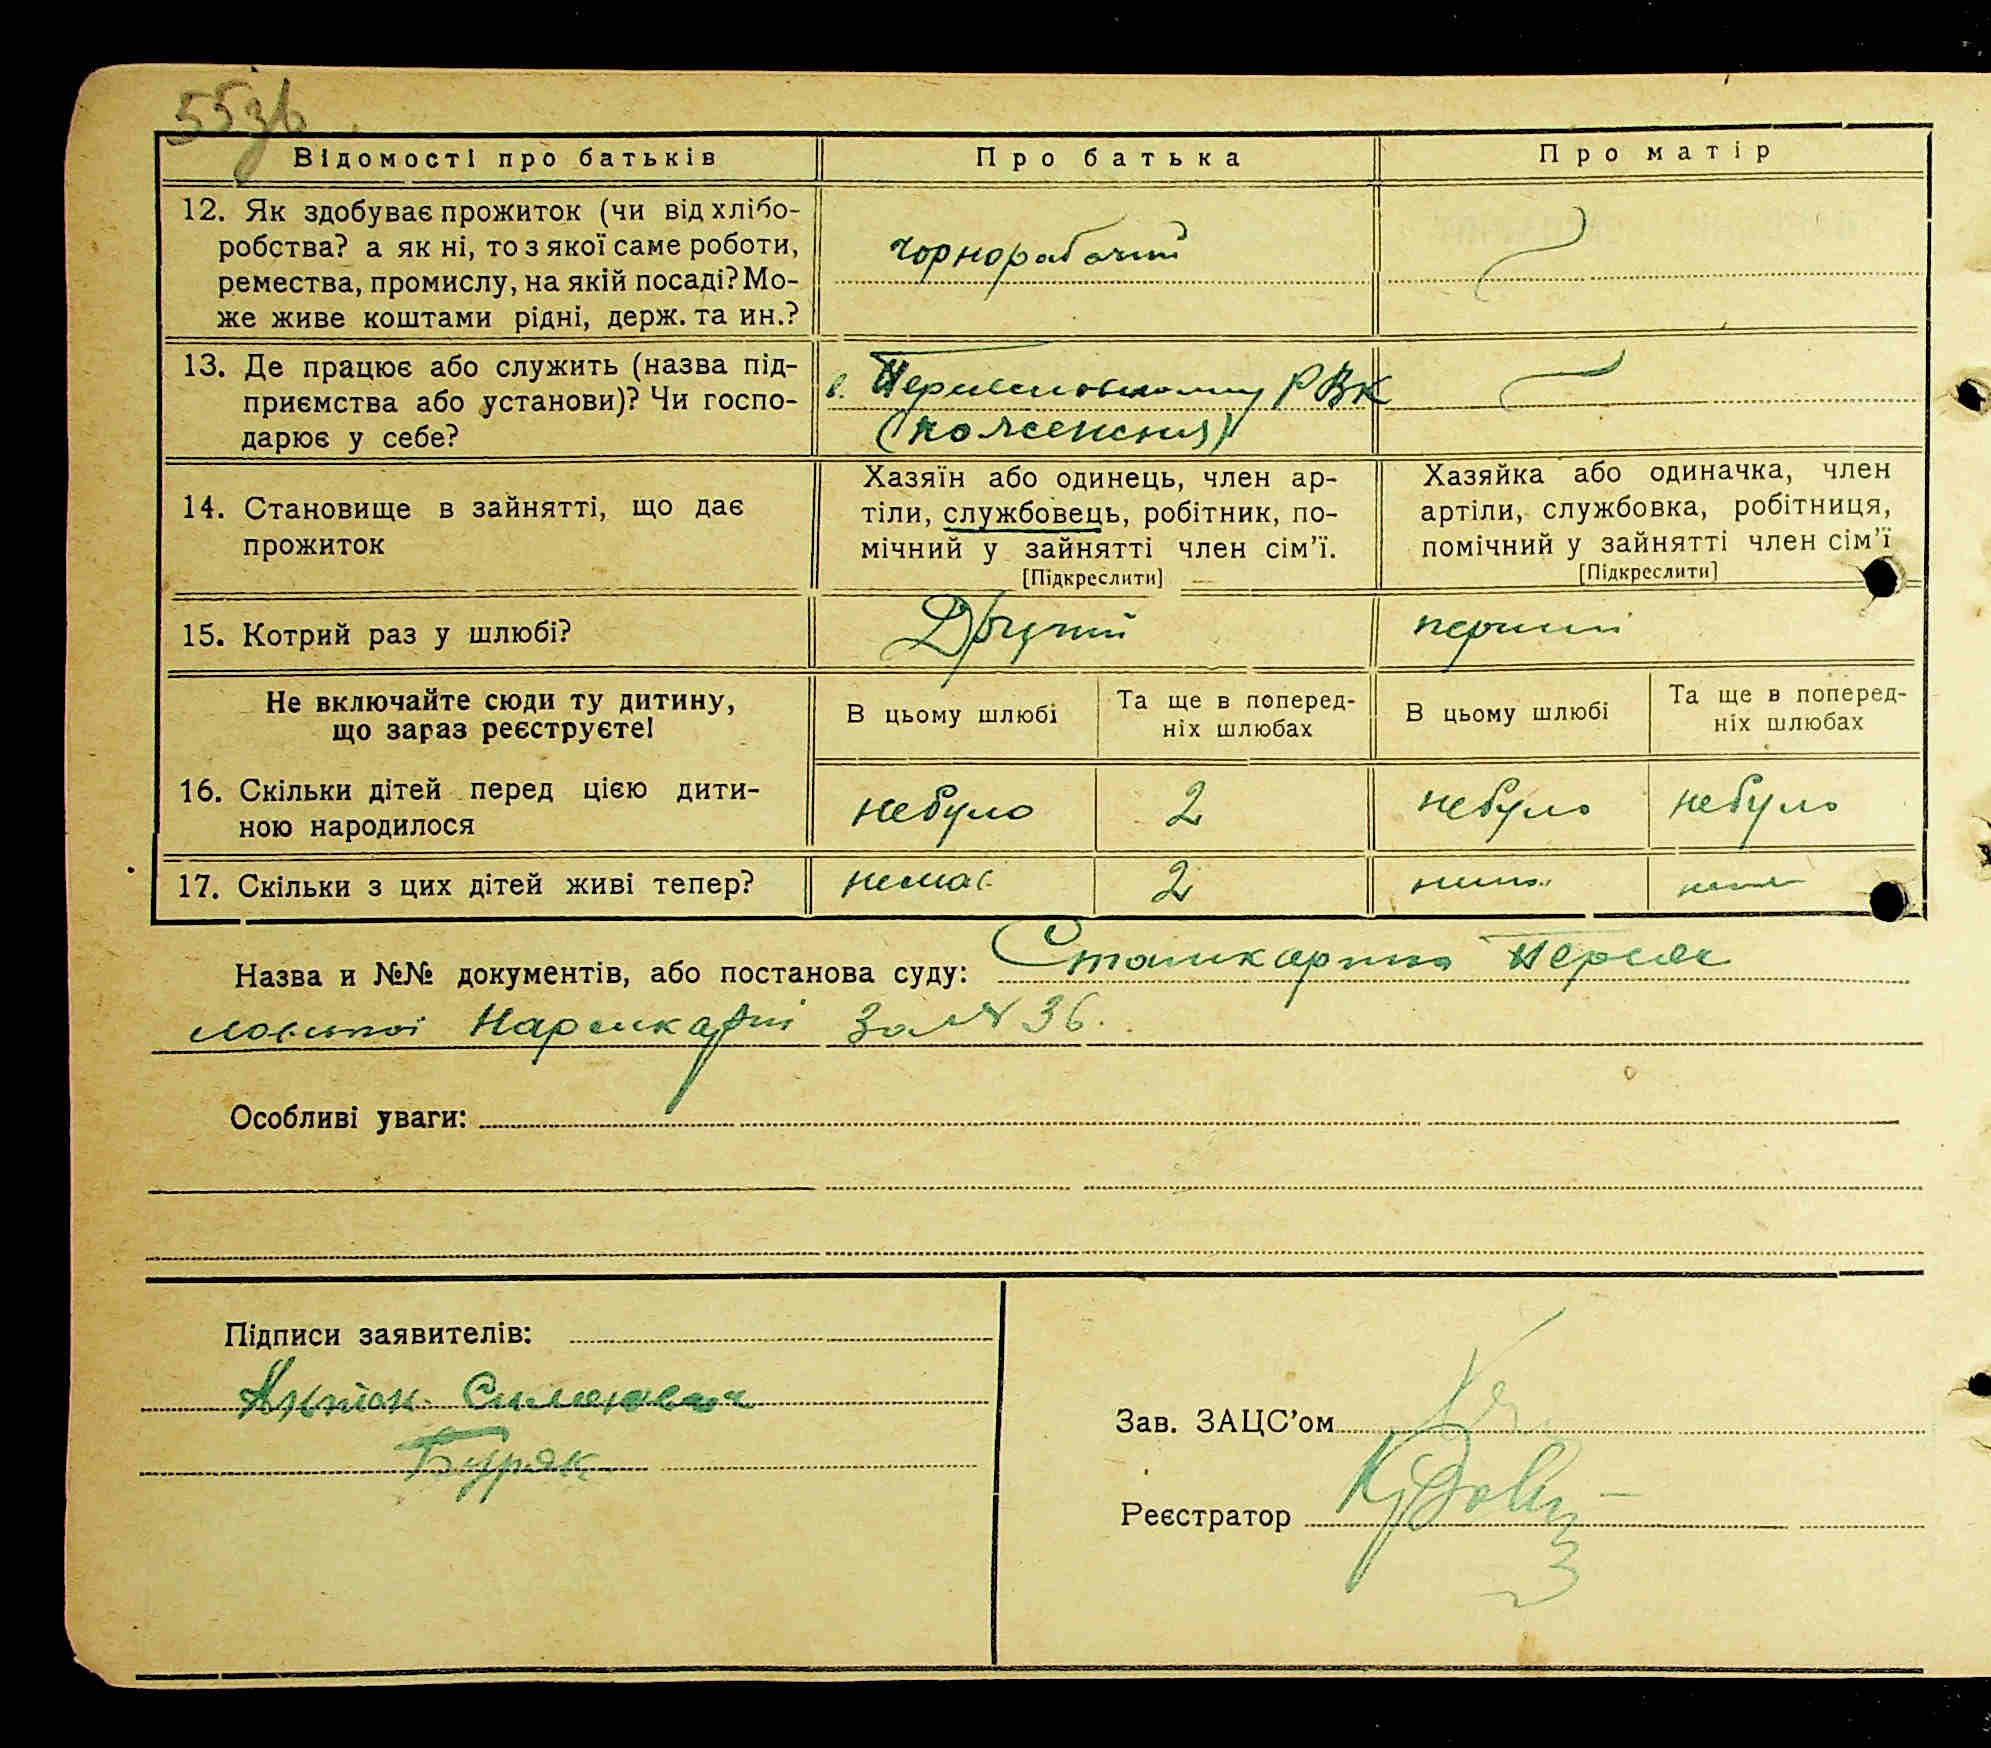 55зв
Відомості про батьків
Про батька
Про матір
12. Як здобуває прожиток (чи від хлібо-
робства? а як ні, то з якої саме роботи,
ремества, промислу, на якій посаді? Мо-
же живе коштами рідні, держ. та ин.?
чорнорабочий
13. Де працює або служить (назва під-
приємства або установи)? Чи госпо-
дарює у себе?
в. РВК
14. Становище в зайнятті, що дає
прожиток
Хазяїн або одинець, член ар-
тіли, службовець, робітник, по-
мічний у зайнятті член сім'ї.
[Підкреслити]
Хазяйка або одиначка, член
артіли, службовка, робітниця,
помічний у зайнятті член сім'ї
[Підкреслити]
15. Котрий раз у шлюбі?
Другий
перший
Не включайте сюди ту дитину,
що зараз реєструєте!
В цьому шлюбі
Та ще в поперед-
ніх шлюбах
В цьому шлюбі
Та ще в поперед-
ніх шлюбах
16. Скільки дітей перед цією дити-
ною народилося
небуло
2
небуло
небуло
17. Скільки з цих дітей живі тепер?
немає
2
Назва и №№ документів, або постанова суду:
за № 36.
Особливі уваги:
Підписи заявителів:
Антон
Буряк
Зав. ЗАЦС'ом
Реєстратор